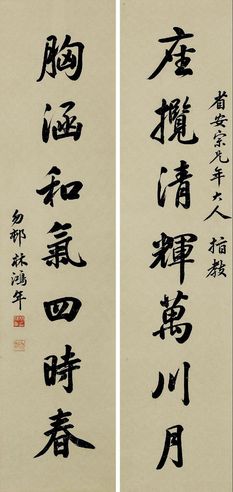 省安宗兄年大人 指教
座攬清輝萬川月
胸涵和氣四時春
勿邨林鴻年